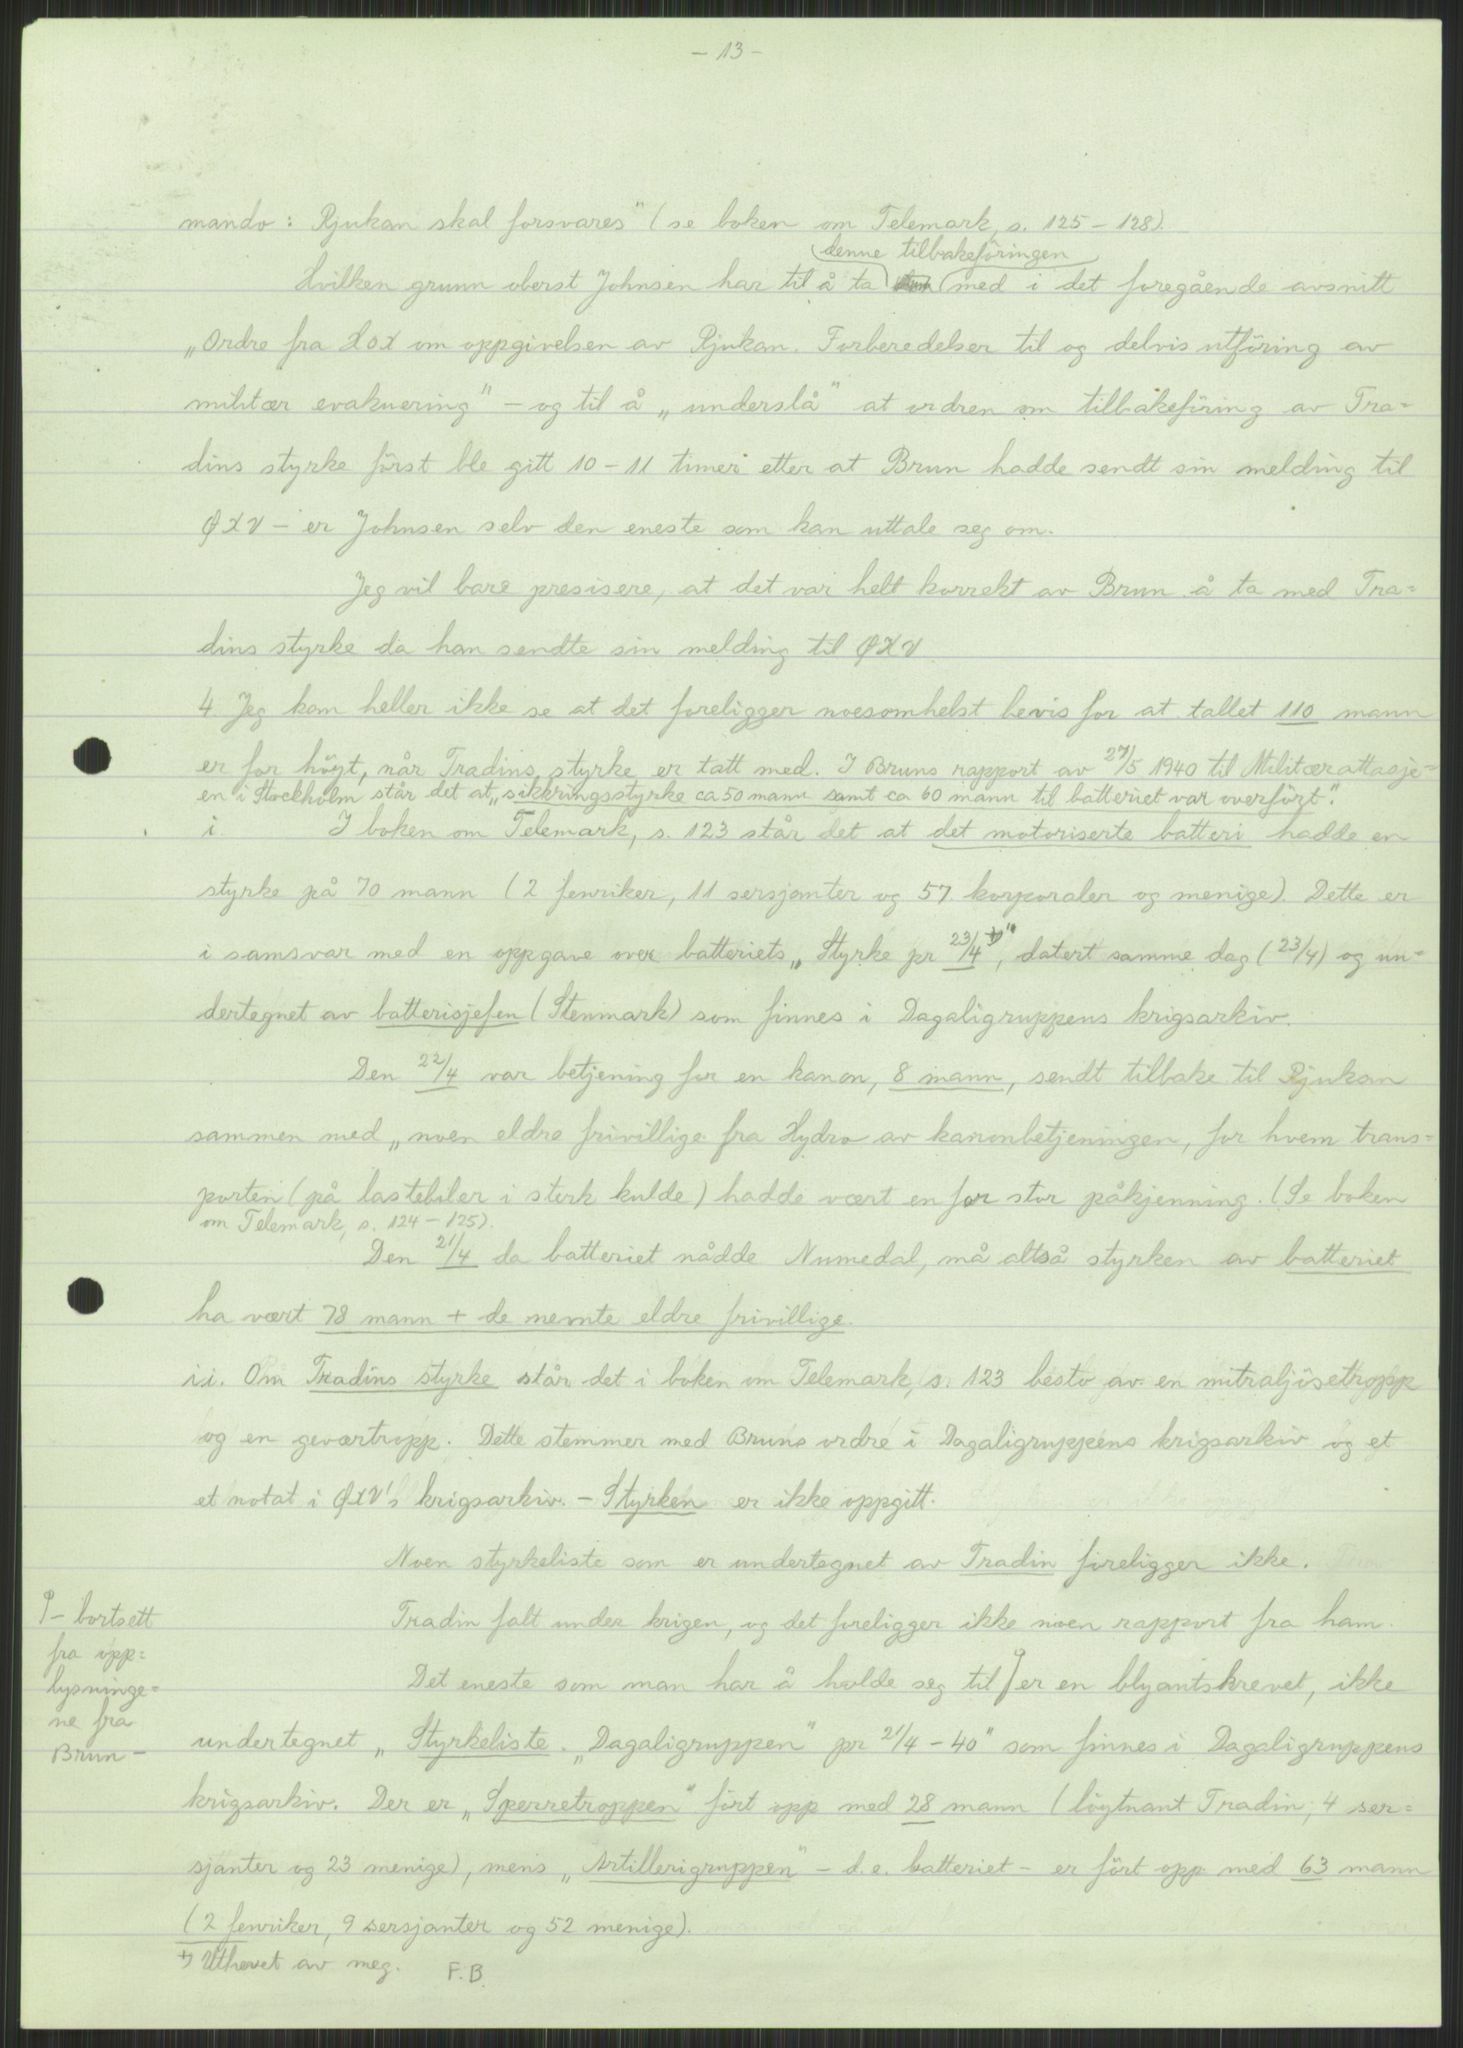 - 13 -
mando: Rjukan skal forsvares" (se boken om Telemark, s. 125 - 128).
denne tilbakeföringen
Hvilken grunn oberst Johnsen har til å ta med i det foregående avsnitt
„Ordre fra HOK om oppgivelsen av Rjukan. Forberedelser til og delvis utföring av
militær evakuering" - og til å „underslå" at ordren om tilbakeföring av Tra=
dins styrke först ble gitt 10 - 11 timer etter at Brun hadde sendt sin melding til
ØKV - er Johnsen selv den eneste som kan uttale seg om.
Jeg vil bare presisere, at det var helt korrekt av Brun å ta med Tra=
dins styrke da han sendte sin melding til ØKV
4. Jeg kan heller ikke se at det foreligger noesomhelst bevis for at tallet 110 mann
er for höyt, når Tradins styrke er tatt med. I Bruns rapport av 27/5 1940 til Militærattasje=
en i Stockholm står det at „sikkringsstyrke ca 50 mann samt ca 60 mann til batteriet var overfört".
i. I boken om Telemark, s. 123 står det at det motoriserte batteri hadde en
styrke på 70 mann (2 fenriker, 11 sersjanter og 57 korporaler og menige). Dette er
i samsvar med en oppgave over batteriets „Styrke pr 23/4 +)", datert samme dag (23/4) og un=
dertegnet av batterisjefen (Stenmark) som finnes i Dagaligruppens krigsarkiv.
Den 22/4 var betjening for en kanon, 8 mann, sendt tilbake til Rjukan
sammen med „noen eldre frivillige fra Hydro av kanonbetjeningen, for hvem trans=
porten (på lastebiler i sterk kulde) hadde vært en for stor påkjenning. (Se boken
om Telemark, s. 124 - 125).
Den 21/4 da batteriet nådde Numedal, må altså styrken av batteriet
ha vært 78 mann + de nevnte eldre frivillige.
ii. Om Tradins styrke står det i boken om Telemark, s. 123 besto av en mitraljösetropp
og en geværtropp. Dette stemmer med Bruns ordre i Dagaligruppens krigsarkiv og et
et notat i ØKV's krigsarkiv. - Styrken er ikke oppgitt.
Noen styrkeliste som er undertegnet av Tradin foreligger ikke.
Tradin falt under krigen, og det foreligger ikke noen rapport fra ham.
Det eneste som man har å holde seg til er en blyantskrevet, ikke
- bortsett
fra opp=
lysninge=
ne fra
Brun -
undertegnet „Styrkeliste „Dagaligruppen" pr 21/4 - 40" som finnes i Dagaligruppens
krigsarkiv. Der er „Sperretroppen" fört opp med 28 mann (löytnant Tradin, 4 ser=
sjanter og 23 menige), mens „Artillerigruppen" - d.e. batteriet - er fört opp med 63 mann
(2 fenriker, 9 sersjanter og 52 menige).
+) Uthevet av meg. F.B.